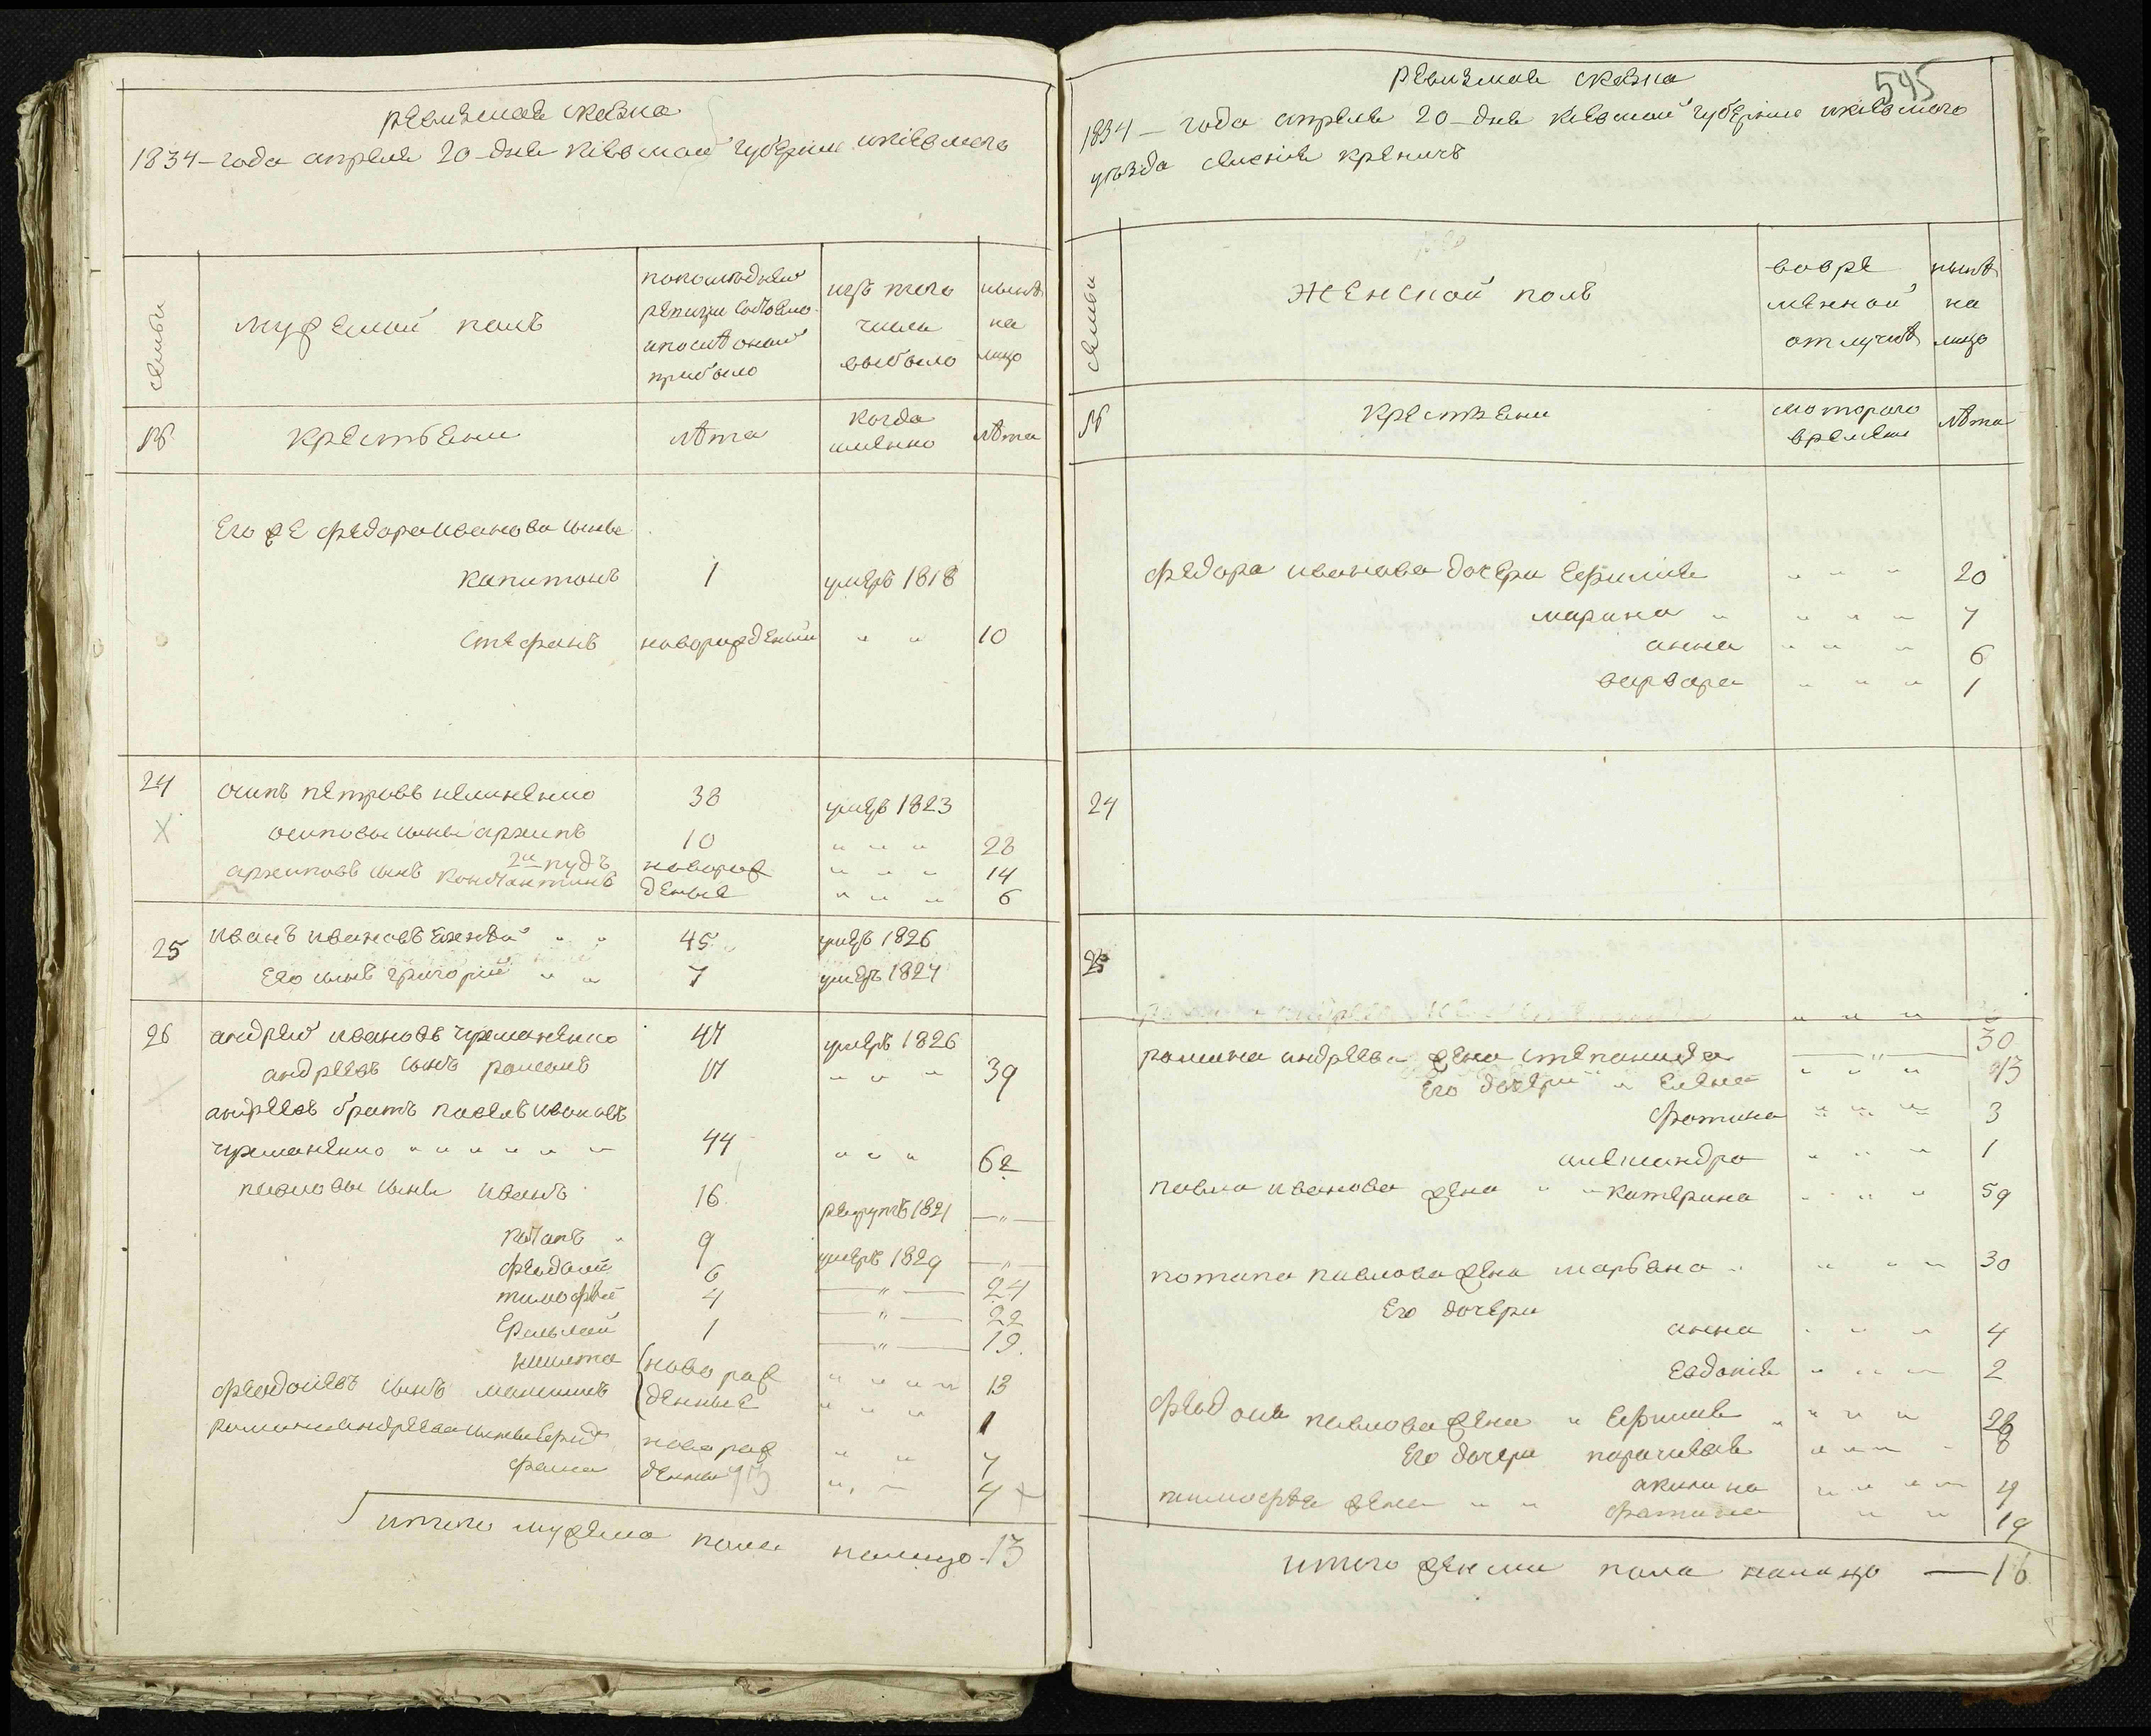 ревизская сказка
1834 – года апреля 20 – дня Киевской губернии и киевского
семьи
мужеской полъ
по последней ревизии состояло и после оной прибыло
изъ того числа выбыло
ныне на лицо
№
крестьяни
лѣта
когда именно
лѣта
его же федора иванова сыны
капитонъ 1 умеръ 1818
стефанъ новорожденый " " 10
24 осипъ петровъ 38 умеръ 1823
осиповы сыны архипъ 10 " " " 28
2й пудъ новорож " " " 14
архиповъ сынъ константинъ деные " " " 6
25 иванъ ивановъ " " 45 умеръ 1826
его сынъ григорий " " 7 умеръ 1824
26 андрей ивановъ 47 умеръ 1826
андреевъ сынъ романъ 17 " " " 39
андреевъ братъ павелъ ивановъ
" " " " " " 44 " " " 62
павловы сыны иванъ 16 рекрутъ 1821 — " —
потапъ " 9 умеръ 1829 — " —
феодосий 6 — " — 24
тимофей 4 — " — 22
1 — " — 19
никита новорож " " " " 13
феодосиевъ сынъ денные " " " 1
романа андреева сыны новорож " " 7
фома денные " " 4
итого мужеска пола налицо – 13
595
ревизская сказка
1834 – года апреля 20 – дня киевской губернии и киевского
уѣзда селения креничъ
семьи
женской полъ
во временной отлучкѣ
нынѣ на лицо
№
крестьяни
с которого времени
лѣта
федора иванова дочери ефимия " " " 20
марина " " " " " 7
анна " " " 6
варвара " " " 1
24
25
романа андреева жена степанида — " — 30
его дочери " елена " " " 13
фотина " " " 3
александра " " " 1
павла иванова жена " " катерина " " " " 59
потапа павлова жена " " " " 30
его дочери
анна " " " 4
евдокия " " " " 2
феодосия павлова жена " ефимия " " " " 26
его дочери параскевия " " " " 8
акилина " " " " 4
тимофея жена " " фотина " " 19
итого женска пола налицо — 16